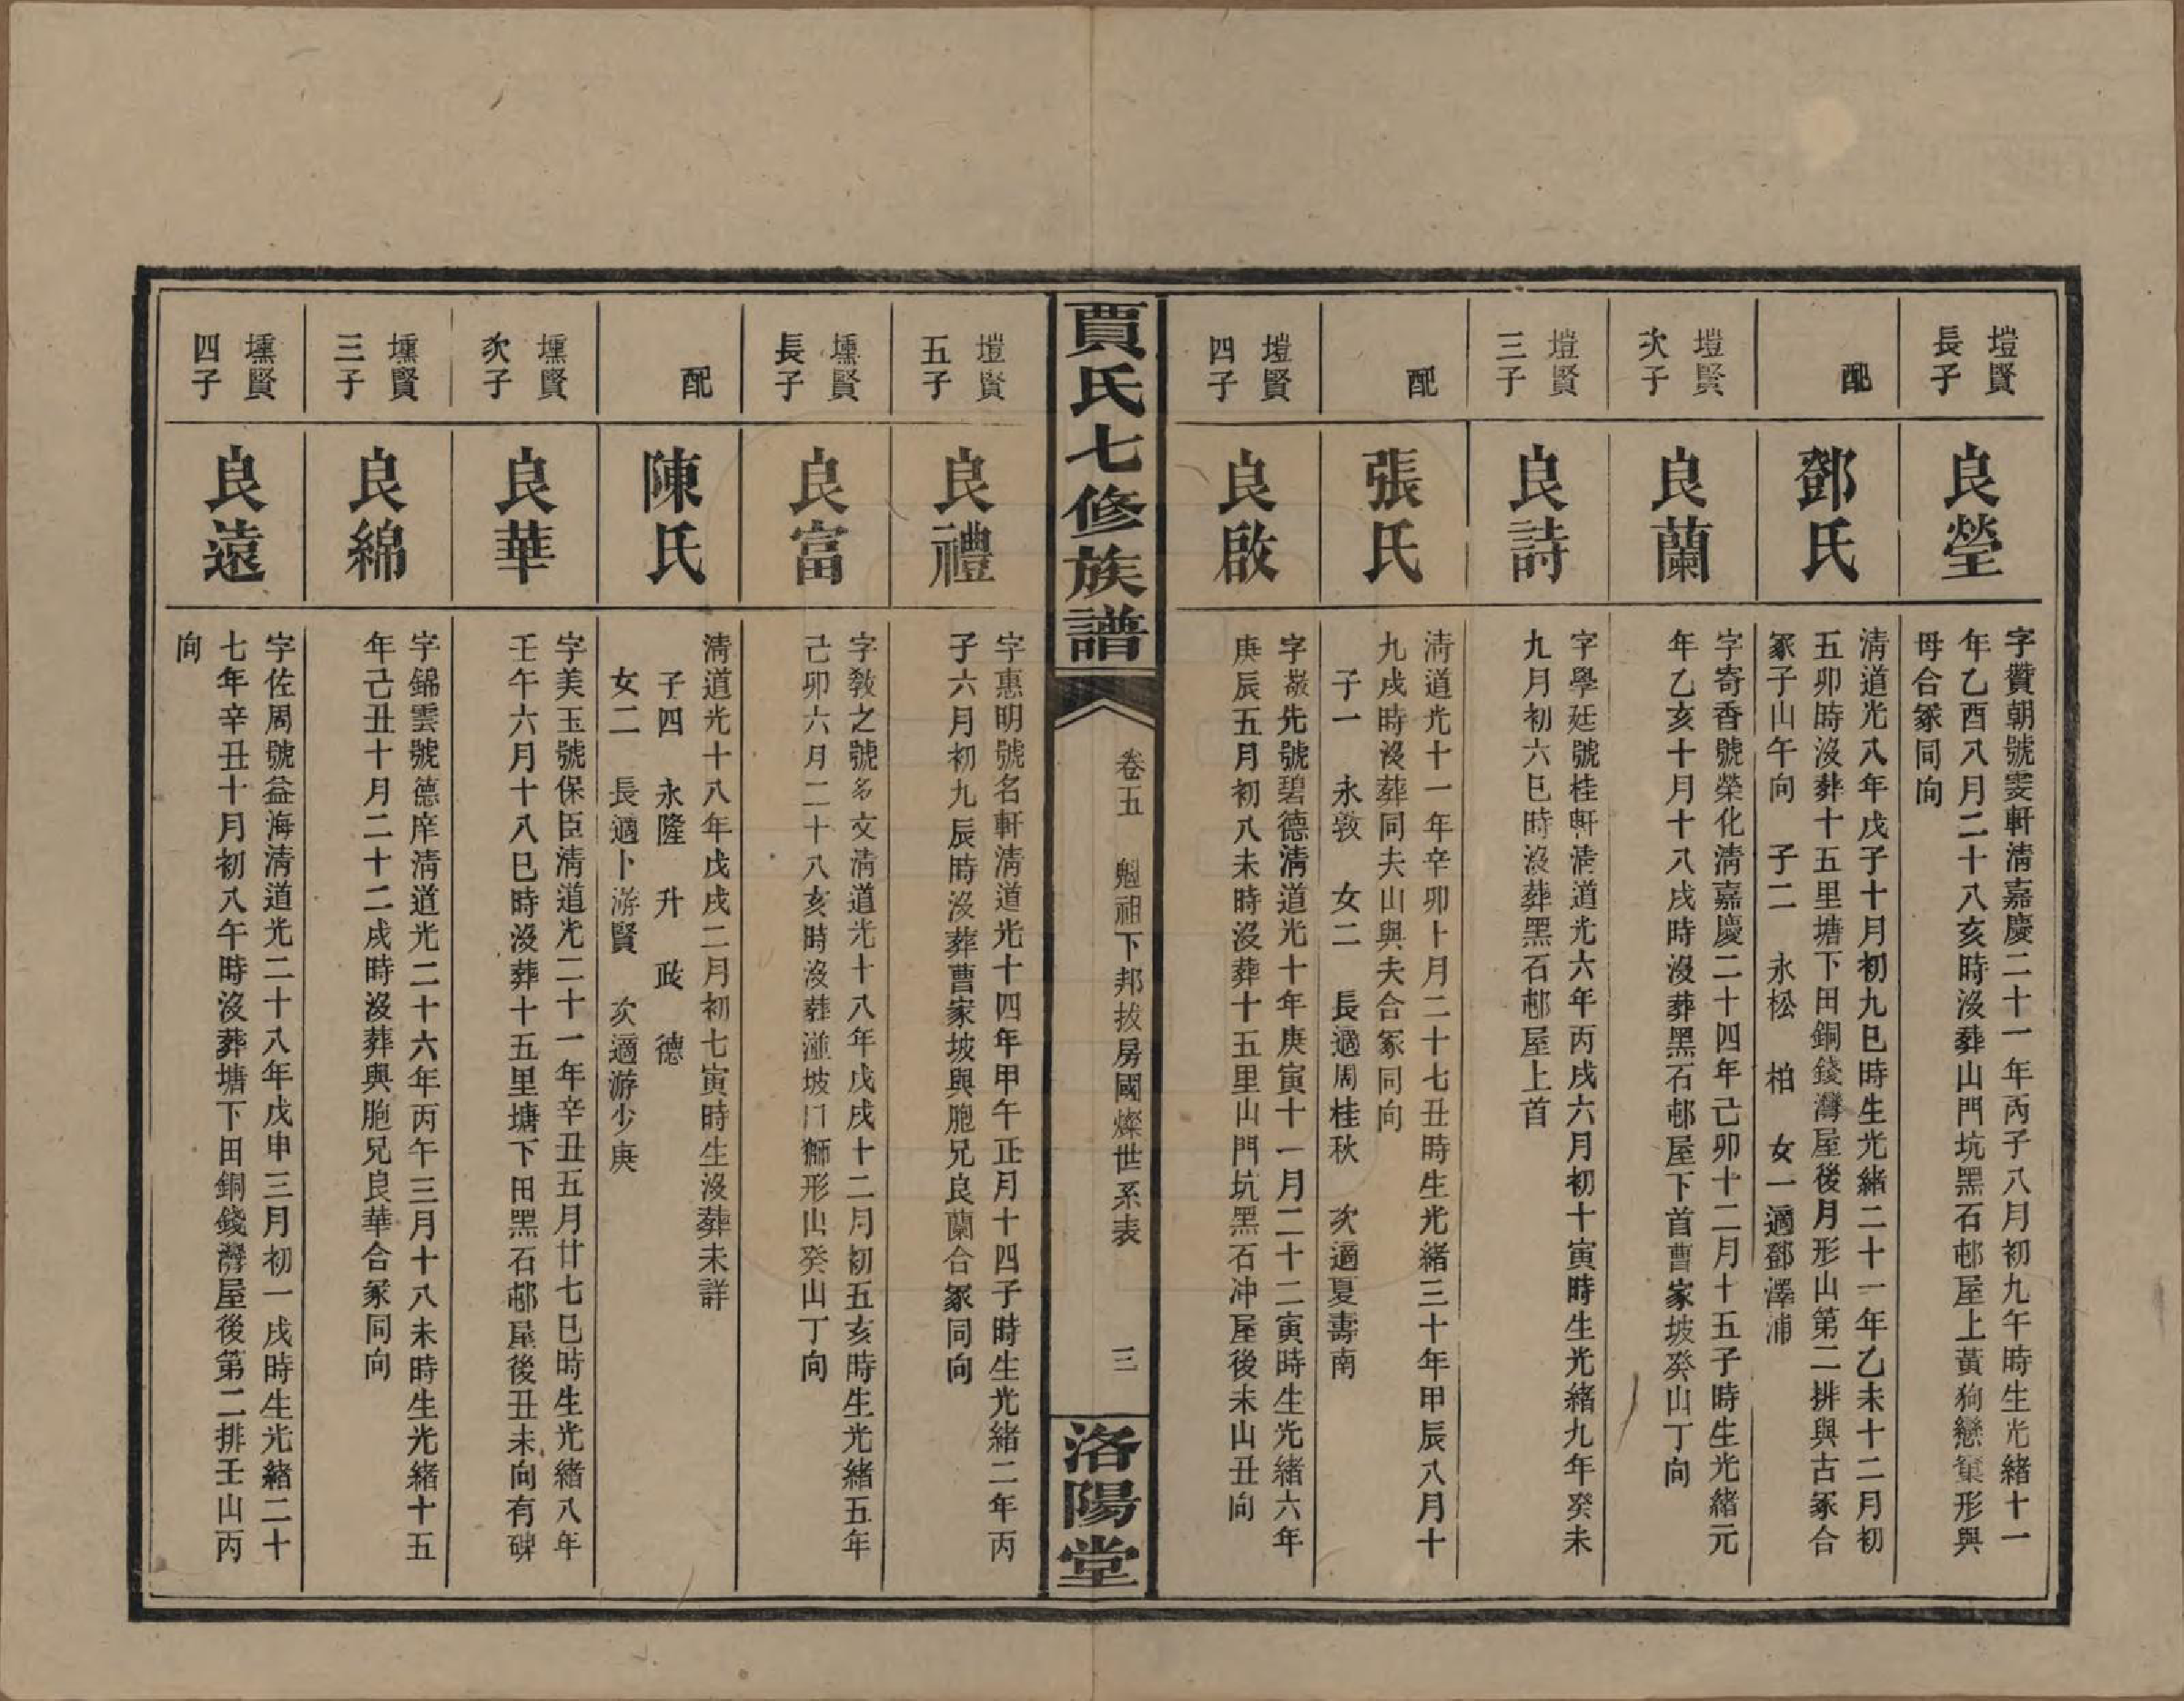 塏賢
長子
良瑩
字贊朝號雯軒清嘉慶二十一年丙子八月初九午時生光緒十一
年乙酉八月二十八亥時沒葬山門坑黑石邨屋上黃狗戀窠形與
母合冢同向
配
鄧氏
清道光八年戊子十月初九巳時生光緒二十一年乙未十二月初
五卯時沒葬十五里塘下田銅錢灣屋後月形山第二排與古冢合
冢子山午向　子二　永松　柏　女一適鄧澤浦
塏賢
次子
良蘭
字寄香號榮化清嘉慶二十四年己卯十二月十五子時生光緒元
年乙亥十月十八戌時沒葬黑石邨屋下首曹家坡癸山丁向
塏賢
三子
良詩
字學廷號桂軒清道光六年丙戌六月初十寅時生光緒九年癸未
九月初六巳時沒葬黑石邨屋上首
配
張氏
清道光十一年辛卯十月二十七丑時生光緒三十年甲辰八月十
九戌時沒葬同夫山與夫合冢同向
子一　永敦　女二　長適周桂秋　次適夏壽南
塏賢
四子
良啟
字㘙先號碧德清道光十年庚寅十一月二十二寅時生光緒六年
庚辰五月初八未時沒葬十五里山門坑黑石冲屋後未山丑向
賈氏七修族譜
卷五　魁祖下邦拔房國燦世系表　三
洛陽堂
塏賢
五子
良禮
字惠明號名軒清道光十四年甲午正月十四子時生光緒二年丙
子六月初九辰時沒葬曹家坡與胞兄良蘭合冢同向
壎賢
長子
良富
字敎之號名交清道光十八年戊戌十二月初五亥時生光緒五年
己卯六月二十八亥時沒葬湴坡口獅形山癸山丁向
配
陳氏
清道光十八年戊戌二月初七寅時生沒葬未詳
子四　永隆　升　政　德
女二　長適卜游賢　次適游少庚
壎賢
次子
良華
字美玉號保臣清道光二十一年辛丑五月廿七巳時生光緒八年
壬午六月十八巳時沒葬十五里塘下田黑石邨屋後丑未向有碑
壎賢
三子
良綿
字錦雲號德庠清道光二十六年丙午三月十八未時生光緒十五
年己丑十月二十二戌時沒葬與胞兄良華合冢同向
壎賢
四子
良遠
字佐周號益海清道光二十八年戊申三月初一戌時生光緒二十
七年辛丑十月初八午時沒葬塘下田銅錢灣屋後第二排壬山丙
向